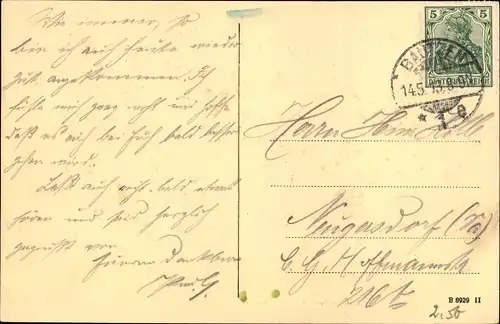 Wie immer, so
bin ich auch heute wieder
gut angekommen. Ich
fühle mich ganz wohl und hoffe
daß es auch bei Euch bald besser
gehen wird.
Laßt auch recht bald etwas
hören und seid herzlich
gegrüßt von
Eurem dankbaren
5 5
DEUTSCHES REICH
BAUTZEN
14.5.
* 1 e
Herrn
Neugersdorf (Sa)
C. G. Hoffmannstr
B 8929 II
2.50